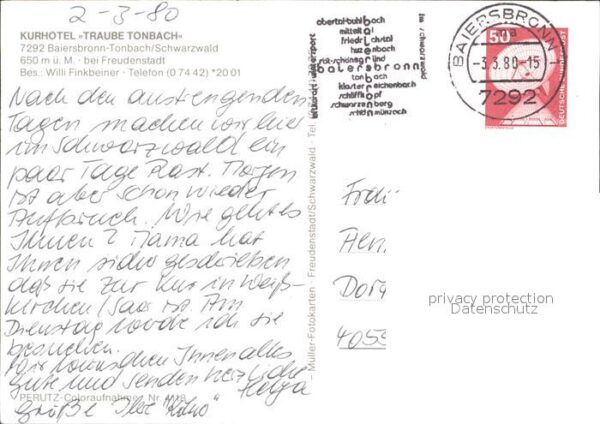 2-3-80
KURHOTEL »TRAUBE TONBACH«
7292 Baiersbronn-Tonbach/Schwarzwald
650 m ü. M. · bei Freudenstadt
Bes.: Willi Finkbeiner · Telefon (0 74 42) *20 01
Nach den anstrengenden
Tagen machen wir hier
im Schwarzwald ein
paar Tage Rast. Morgen
ist aber schon wieder
Aufbruch. Wie geht es
Ihnen? Mama hat
Ihnen sicher geschrieben
daß sie zur Kur in Weiß-
kirchen/Saar ist. Am
Dienstag werde ich sie
besuchen.
Wir wünschen Ihnen alles
Gute und senden herzliche
Grüße Ilse
Helga
PERUTZ-Coloraufnahme
Müller-Fotokarten · Freudenstadt/Schwarzwald · Tel.
obertal-buhlbach
mitteltal
friedrichstal
huzenbach
röt-schönegründ
baiersbronn
tonbach
klosterreichenbach
schliffkopf
schwarzenberg
schönmünzach
im schwarzwald
BAIERSBRONN
-3.3.80-15
7292
50
DEUTSCHE BUNDESPOST
Dora
4055
privacy protection
Datenschutz